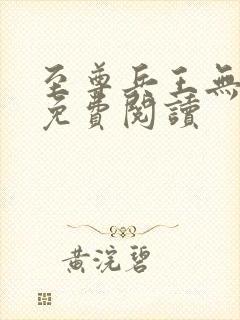 至尊兵王無
免費閱讀
黃浣碧